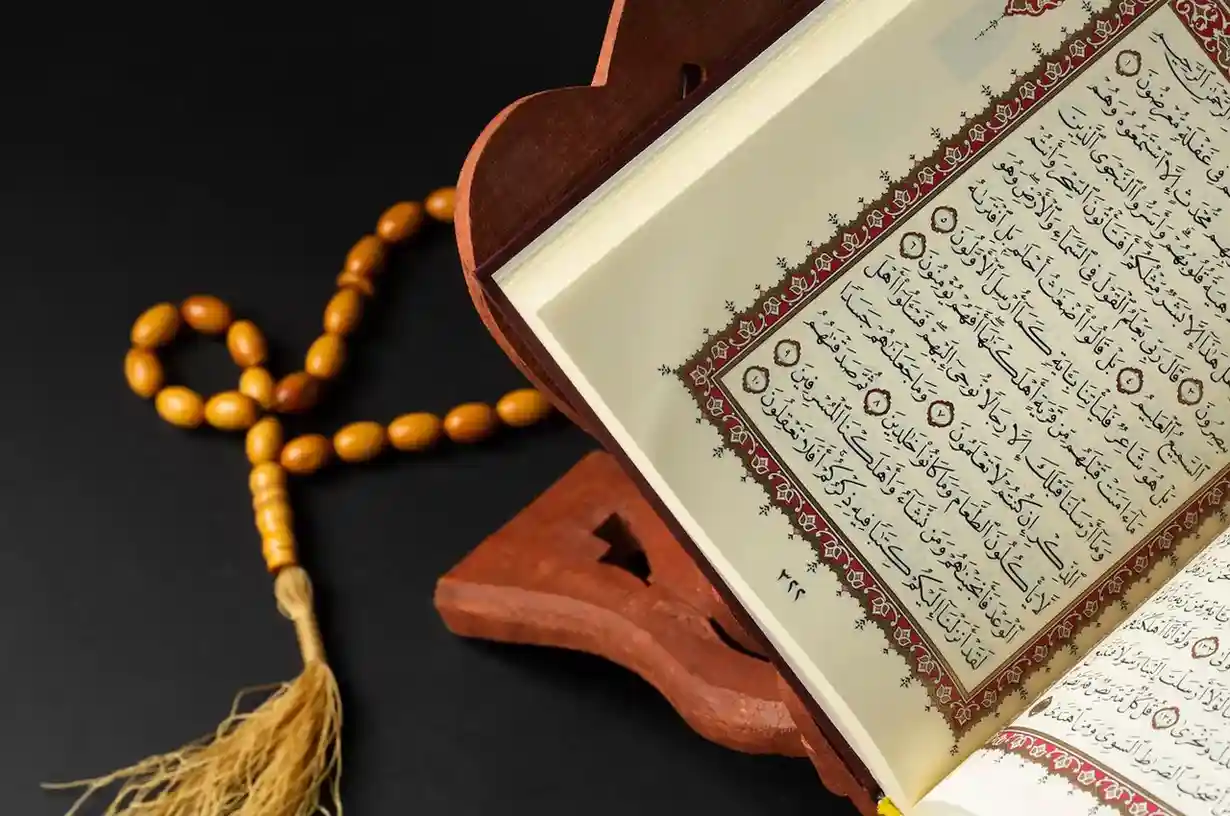 الرَّحْمَنِ الرَّحِيمِ
فِي غَفْلَةٍ مُّعْرِضُونَ ١
مُّحْدَثٍ إِلَّا اسْتَمَعُوهُ وَهُمْ
قُلُوبُهُمْ وَأَسَرُّوا النَّجْوَى الَّذِينَ
هَلْ هَٰذَا إِلَّا بَشَرٌ مِّثْلُكُمْ أَفَتَأْتُونَ السِّحْرَ وَأَنتُمْ
تُبْصِرُونَ ٣ قَالَ رَبِّي يَعْلَمُ الْقَوْلَ فِي السَّمَاءِ وَالْأَرْضِ وَهُوَ
السَّمِيعُ الْعَلِيمُ ٤ بَلْ قَالُوا أَضْغَٰثُ أَحْلَٰمٍ بَلِ افْتَرَىٰهُ
بَلْ هُوَ شَاعِرٌ فَلْيَأْتِنَا بِـَٔايَةٍ كَمَا أُرْسِلَ الْأَوَّلُونَ ٥
مَا ءَامَنَتْ قَبْلَهُم مِّن قَرْيَةٍ أَهْلَكْنَٰهَا أَفَهُمْ يُؤْمِنُونَ ٦
وَمَا أَرْسَلْنَا قَبْلَكَ إِلَّا رِجَالًا نُّوحِي إِلَيْهِمْ فَسْـَٔلُوا أَهْلَ
الذِّكْرِ إِن كُنتُمْ لَا تَعْلَمُونَ ٧ وَمَا جَعَلْنَٰهُمْ جَسَدًا
لَّا يَأْكُلُونَ الطَّعَامَ وَمَا كَانُوا خَٰلِدِينَ ٨ ثُمَّ صَدَقْنَٰهُمُ
الْوَعْدَ فَأَنجَيْنَٰهُمْ وَمَن نَّشَاءُ وَأَهْلَكْنَا الْمُسْرِفِينَ ٩
لَقَدْ أَنزَلْنَا إِلَيْكُمْ كِتَٰبًا فِيهِ ذِكْرُكُمْ أَفَلَا تَعْقِلُونَ ١٠
٣٢٢
وَلَوْ أَنَّا أَهْلَكْنَٰهُم
لَوْلَا أَرْسَلْتَ إِلَيْنَا رَسُولًا فَنَتَّبِعَ
وَنَخْزَىٰ ١٣٤ قُلْ كُلٌّ مُّتَرَبِّصٌ فَتَرَبَّصُوا
أَصْحَٰبُ الصِّرَٰطِ السَّوِيِّ وَمَنِ اهْتَدَىٰ